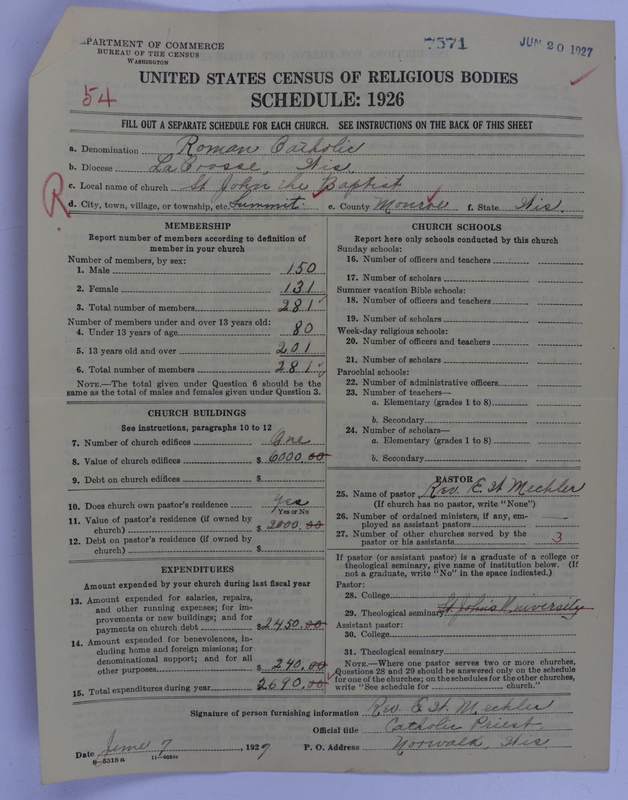 DEPARTMENT OF COMMERCE
BUREAU OF THE CENSUS
WASHINGTON
7571
JUN 20 1927
UNITED STATES CENSUS OF RELIGIOUS BODIES
SCHEDULE: 1926
54
FILL OUT A SEPARATE SCHEDULE FOR EACH CHURCH. SEE INSTRUCTIONS ON THE BACK OF THIS SHEET
a. Denomination Roman Catholic
b. Diocese La Crosse, Wis.
c. Local name of church St John the Baptist
R
d. City, town, village, or township, etc. Summit. e. County Monroe f. State Wis.
MEMBERSHIP
Report number of members according to definition of
member in your church
Number of members, by sex:
1. Male 150
2. Female 131
3. Total number of members 281
Number of members under and over 13 years old:
4. Under 13 years of age 80
5. 13 years old and over 201
6. Total number of members 281
NOTE.—The total given under Question 6 should be
same as the total of males and females given under Question 3.
CHURCH BUILDINGS
See instructions, paragraphs 10 to 12
7. Number of church edifices One
8. Value of church edifices $ 6000.00
9. Debt on church edifices $
10. Does church own pastor's residence yes
Yes or No
11. Value of pastor's residence (if owned by
church) $ 2000.00
12. Debt on pastor's residence (if owned by
church) $
EXPENDITURES
Amount expended by your church during last fiscal year
13. Amount expended for salaries, repairs,
and other running expenses; for im-
provements or new buildings; and for
payments on church debt $ 2450.00
14. Amount expended for benevolences, in-
cluding home and foreign missions; for
denominational support; and for all
other purposes $ 240.00
15. Total expenditures during year 2690.00
CHURCH SCHOOLS
Report here only schools conducted by this church
Sunday schools:
16. Number of officers and teachers
17. Number of scholars
Summer vacation Bible schools:
18. Number of officers and teachers
19. Number of scholars
Week-day religious schools:
20. Number of officers and teachers
21. Number of scholars
Parochial schools:
22. Number of administrative officers
23. Number of teachers—
a. Elementary (grades 1 to 8)
b. Secondary
24. Number of scholars—
a. Elementary (grades 1 to 8)
b. Secondary
PASTOR
25. Name of pastor Rev. E. W. Mechler
(If church has no pastor, write "None")
26. Number of ordained ministers, if any, em-
ployed as assistant pastors —
27. Number of other churches served by the
pastor or his assistants 3
If pastor (or assistant pastor) is a graduate of a college or
theological seminary, give name of institution below. (If
not a graduate, write "No" in the space indicated.)
Pastor:
28. College
29. Theological seminary St. Johns University
Assistant pastor:
30. College
31. Theological seminary
NOTE.—Where one pastor serves two or more churches,
Questions 28 and 29 should be answered only on the schedule
for one of the churches; on the schedules for the other churches,
write "See schedule for church."
Signature of person furnishing information Rev. E. W. Mechler
Official title Catholic Priest
Date June 7, 1927 P. O. Address Norwalk, Wis
8-5318a